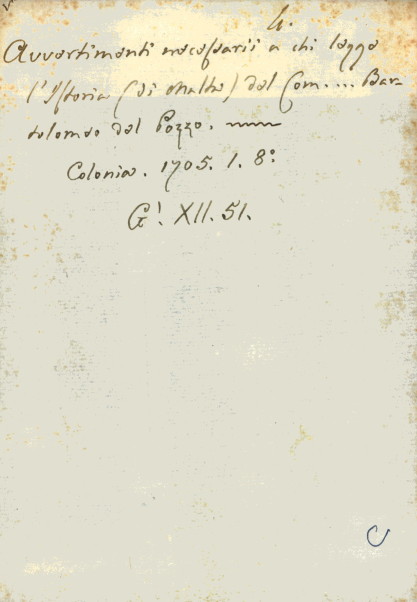 4.
Avvertimenti necessarii a chi legge
l'Istoria (di Malta) del Com.... Bar-
tolomeo dal Pozzo.
Colonia. 1705. 1. 8º
G! XII. 51.
C